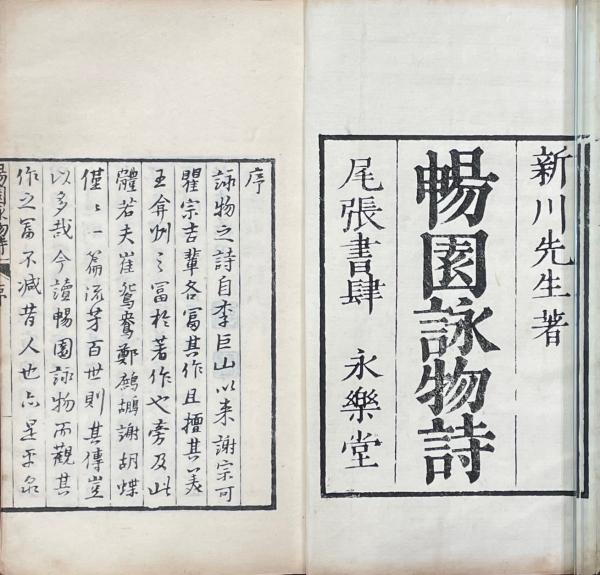 新川先生著
暢園詠物詩
尾張書肆 永樂堂
序
詠物之詩自李巨山以来謝宗可
瞿宗吉輩各冨其作且擅其美
王弇州之冨於著作也旁及此
體若夫崔鴛鴦鄭鷓鴣謝胡蝶
僅〻一篇流芳百世則其傳豈
以多哉今讀暢園詠物而觀其
作之冨不减昔人也亦是乎
暢園詠物詩 序